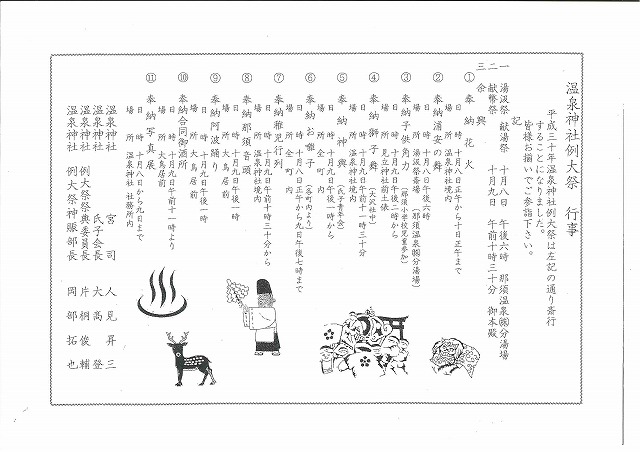 温泉神社例大祭 行事
平成三十年温泉神社例大祭は左記の通り斎行
することになりました。
皆様お揃いでご参詣下さい。
記
一 湯汲祭 献湯祭 十月八日 午後六時 那須温泉㈱分湯場
二 献幣祭 十月九日 午前十時三十分 御本殿
三 余興
① 奉納花火
日 時 十月八日正午から十日正午まで
場 所 温泉神社境内
② 奉納浦安の舞
日 時 十月八日午後六時
場 所 湯汲祭斎場(那須温泉㈱分湯場)
③ 奉納子供角力(那須小学校児童参加)
日 時 十月九日午後二時から
場 所 見立神社前土俵
④ 奉納獅子舞(大沢社中)
日 時 十月九日午前十一時三十分
場 所 温泉神社境内
⑤ 奉納神輿(氏子青年会)
日 時 十月九日午後一時から
場 所 全町内
⑥ 奉納お囃子(各町内より)
日 時 十月八日正午から九日午後七時まで
場 所 全町内
⑦ 奉納稚児行列
日 時 十月九日午前十時三十分から
場 所 温泉神社境内
⑧ 奉納那須音頭
日 時 十月九日午後一時
場 所 大鳥居前
⑨ 奉納阿波踊り
日 時 十月九日午後一時
場 所 大鳥居前
⑩ 奉納合同御酒所
日 時 十月九日午前十一時より
場 所 大鳥居前
⑪ 奉納写真展
日 時 十月八日から九日まで
場 所 温泉神社 社務所内
温泉神社 宮司 人見昇三
温泉神社 氏子会長 大高登
温泉神社 例大祭祭典委員長 片桐俊輔
温泉神社 例大祭神賑部長 岡部拓也